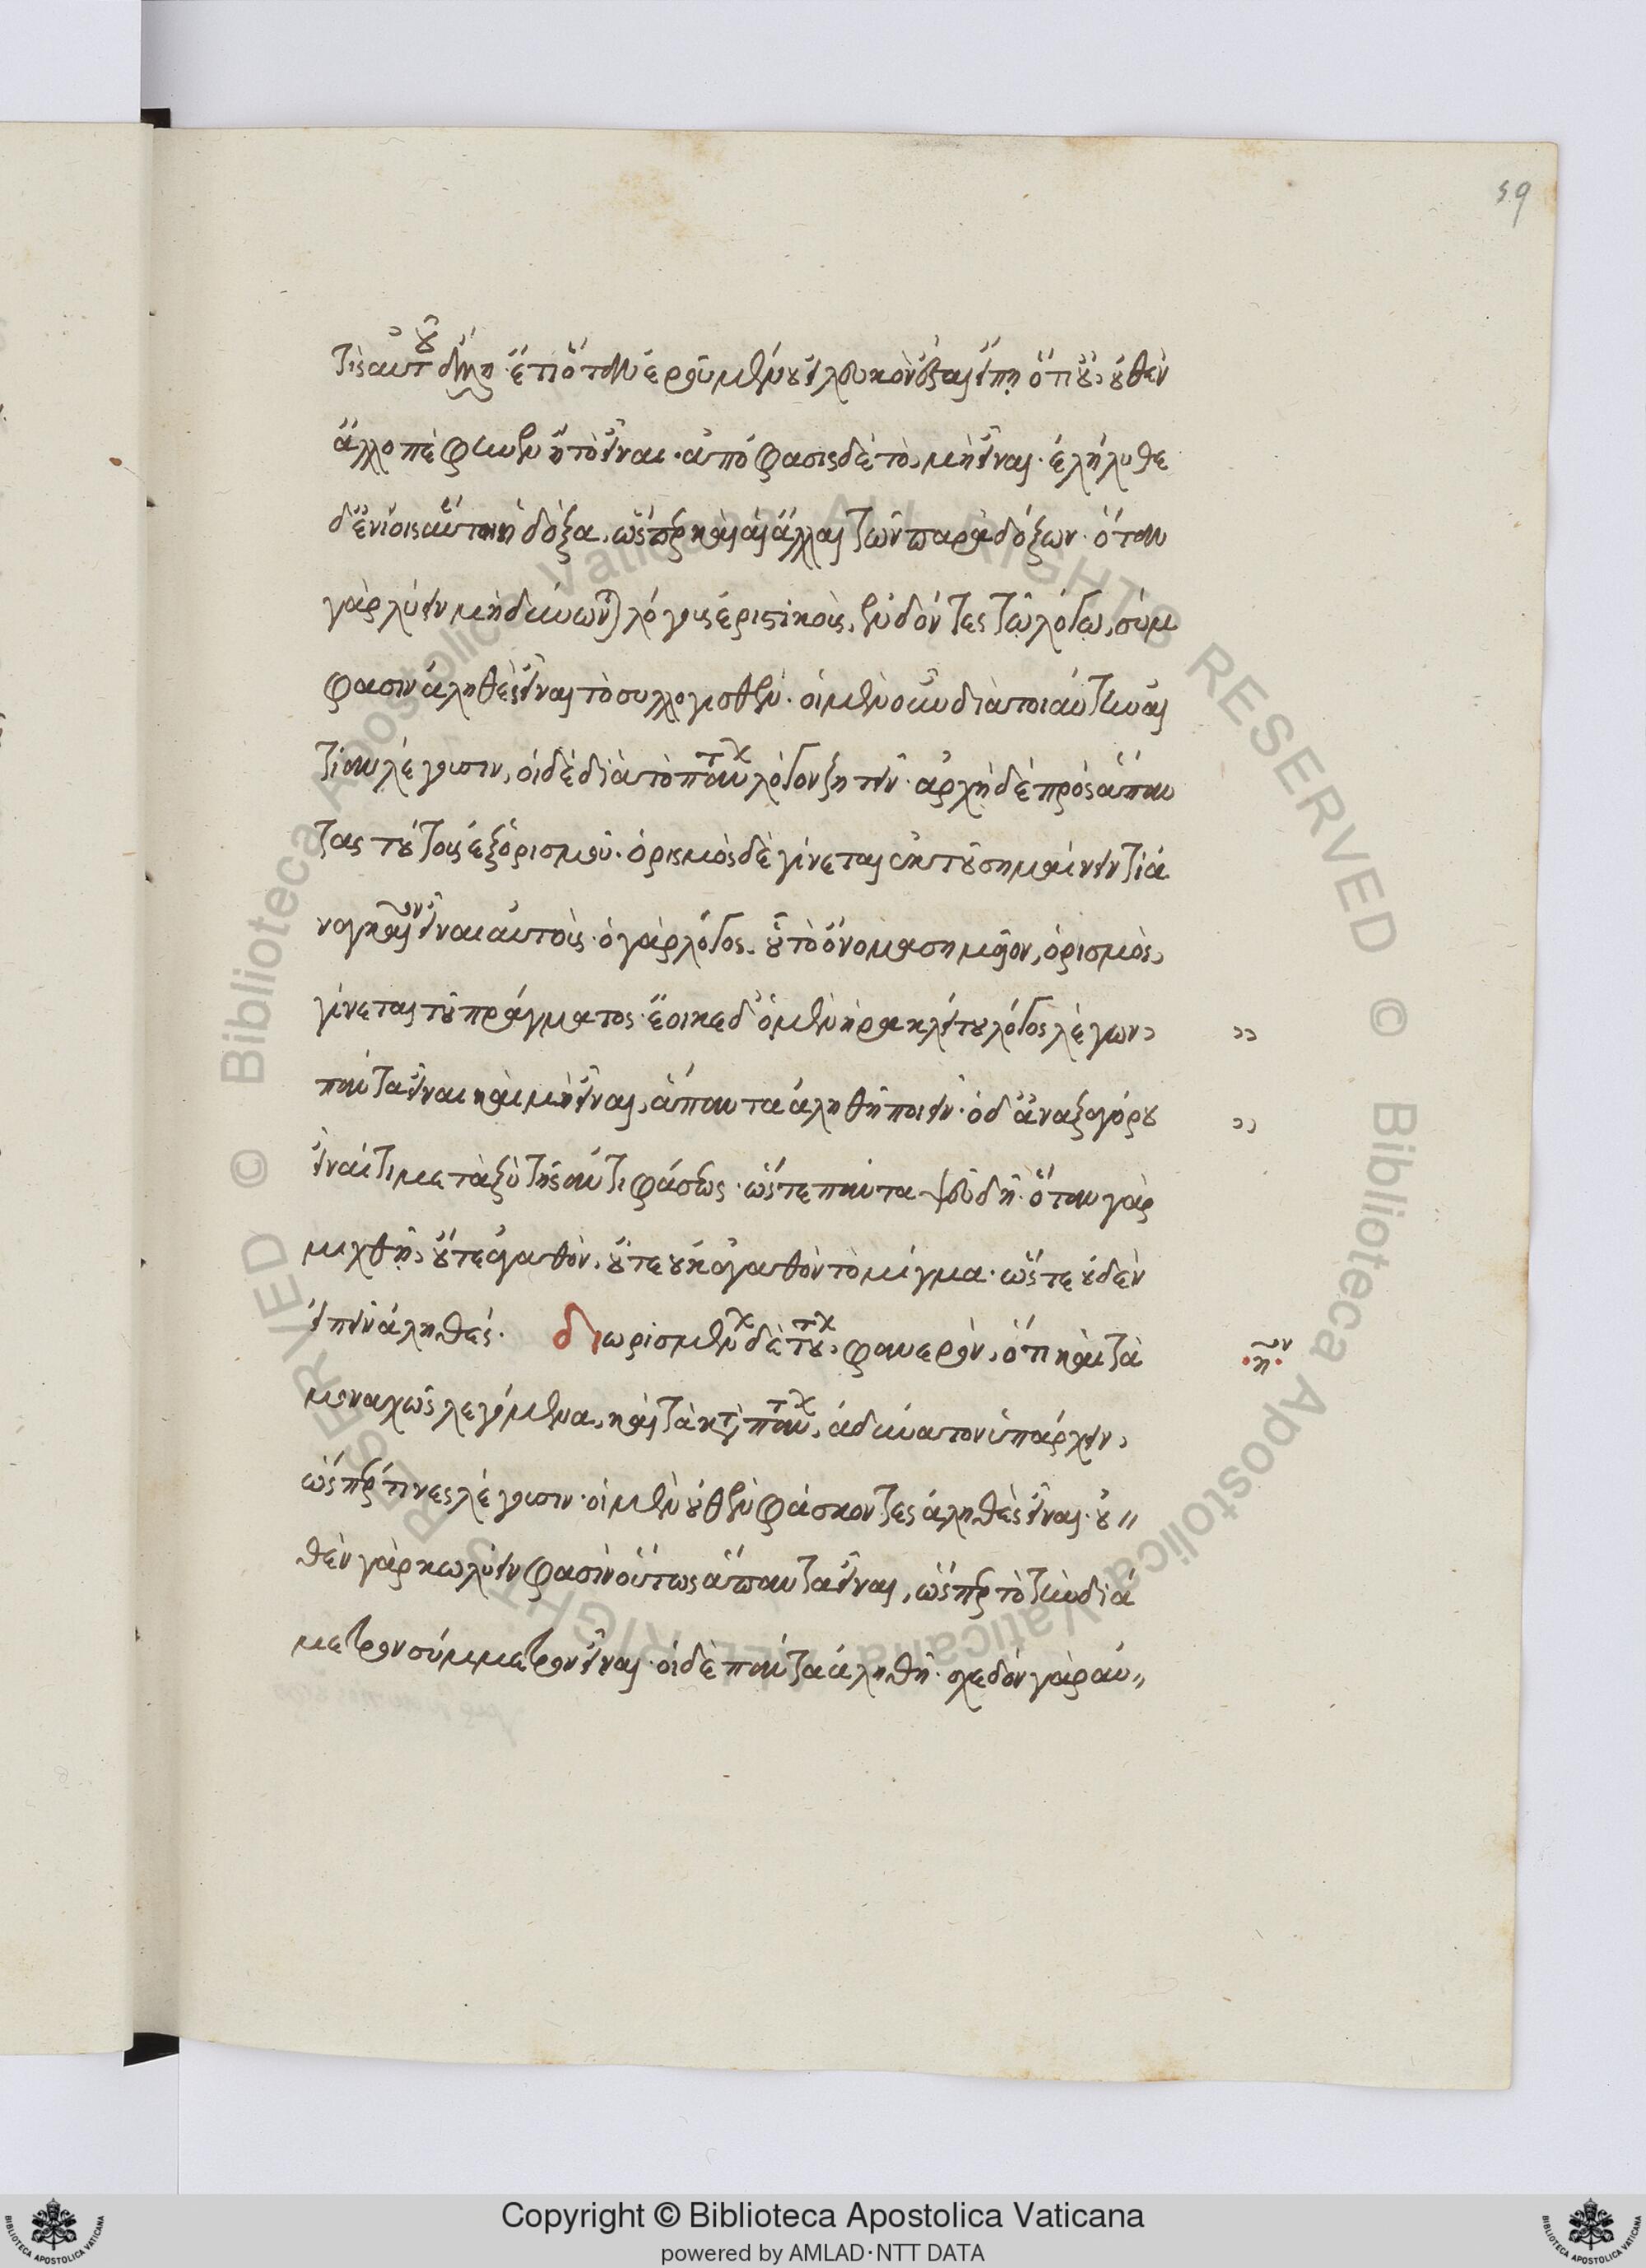 59
τις αὐτοῦ οὐσία ἑτέρα. ἔτι ὅταν ἐρομένου εἰ λευκόν ἐστιν εἴπῃ ὅτι οὔ, οὐθὲν
ἄλλο ἀποπέφηκεν ἢ τὸ εἶναι· ἀπόφασις δὲ τὸ μὴ εἶναι· ἐλήλυθε
δ' ἐνίοις αὕτη ἡ δόξα, ὥσπερ καὶ αἱ ἄλλαι τῶν παραδόξων· ὅταν
γὰρ λύειν μὴ δύνωνται λόγους ἐριστικοὺς, ἐνδόντες τῷ λόγῳ, σύμ
φασιν ἀληθὲς εἶναι τὸ συλλογισθέν· οἱ μὲν οὖν διὰ τοιαύτην αἰ
τίαν λέγουσιν, οἱ δὲ διὰ τὸ πάντων λόγον ζητεῖν· ἀρχὴ δὲ πρὸς ἅπαν
τας τούτους ἐξ ὁρισμοῦ· ὁρισμὸς δὲ γίνεται ἐκ τοῦ σημαίνειν τι ἀ
ναγκαῖον εἶναι αὐτοὺς· ὁ γὰρ λόγος, οὗ τὸ ὄνομα σημεῖον, ὁρισμὸς
γίνεται τοῦ πράγματος· ἔοικε δ' ὁ μὲν ἡρακλείτου λόγος λέγων
πάντα εἶναι καὶ μὴ εἶναι, ἅπαντα ἀληθῆ ποιεῖν· ὁ δ' ἀναξαγόρου
εἶναί τι μεταξὺ τῆς ἀντιφάσεως· ὥστε πάντα ψευδῆ· ὅταν γὰρ
μιχθῇ, οὔτε ἀγαθὸν, οὔτε οὐκ ἀγαθὸν τὸ μίγμα· ὥστε οὐδὲν
εἰπεῖν ἀληθές. διωρισμένων δὲ τούτων, φανερὸν, ὅτι καὶ τὰ
μοναχῶς λεγόμενα, καὶ τὰ κατὰ πάντων, ἀδύνατον ὑπάρχειν,
ὥσπερ τινες λέγουσιν· οἱ μὲν οὐθὲν φάσκοντες ἀληθὲς εἶναι· οὐ
θὲν γὰρ κωλύειν φασὶν οὕτως ἅπαντα εἶναι, ὥσπερ τὸ τὴν διά
μετρον σύμμετρον εἶναι· οἱ δὲ πάντα ἀληθῆ· σχεδὸν γὰρ αὐ
Copyright © Biblioteca Apostolica Vaticana
powered by AMLAD·NTT DATA